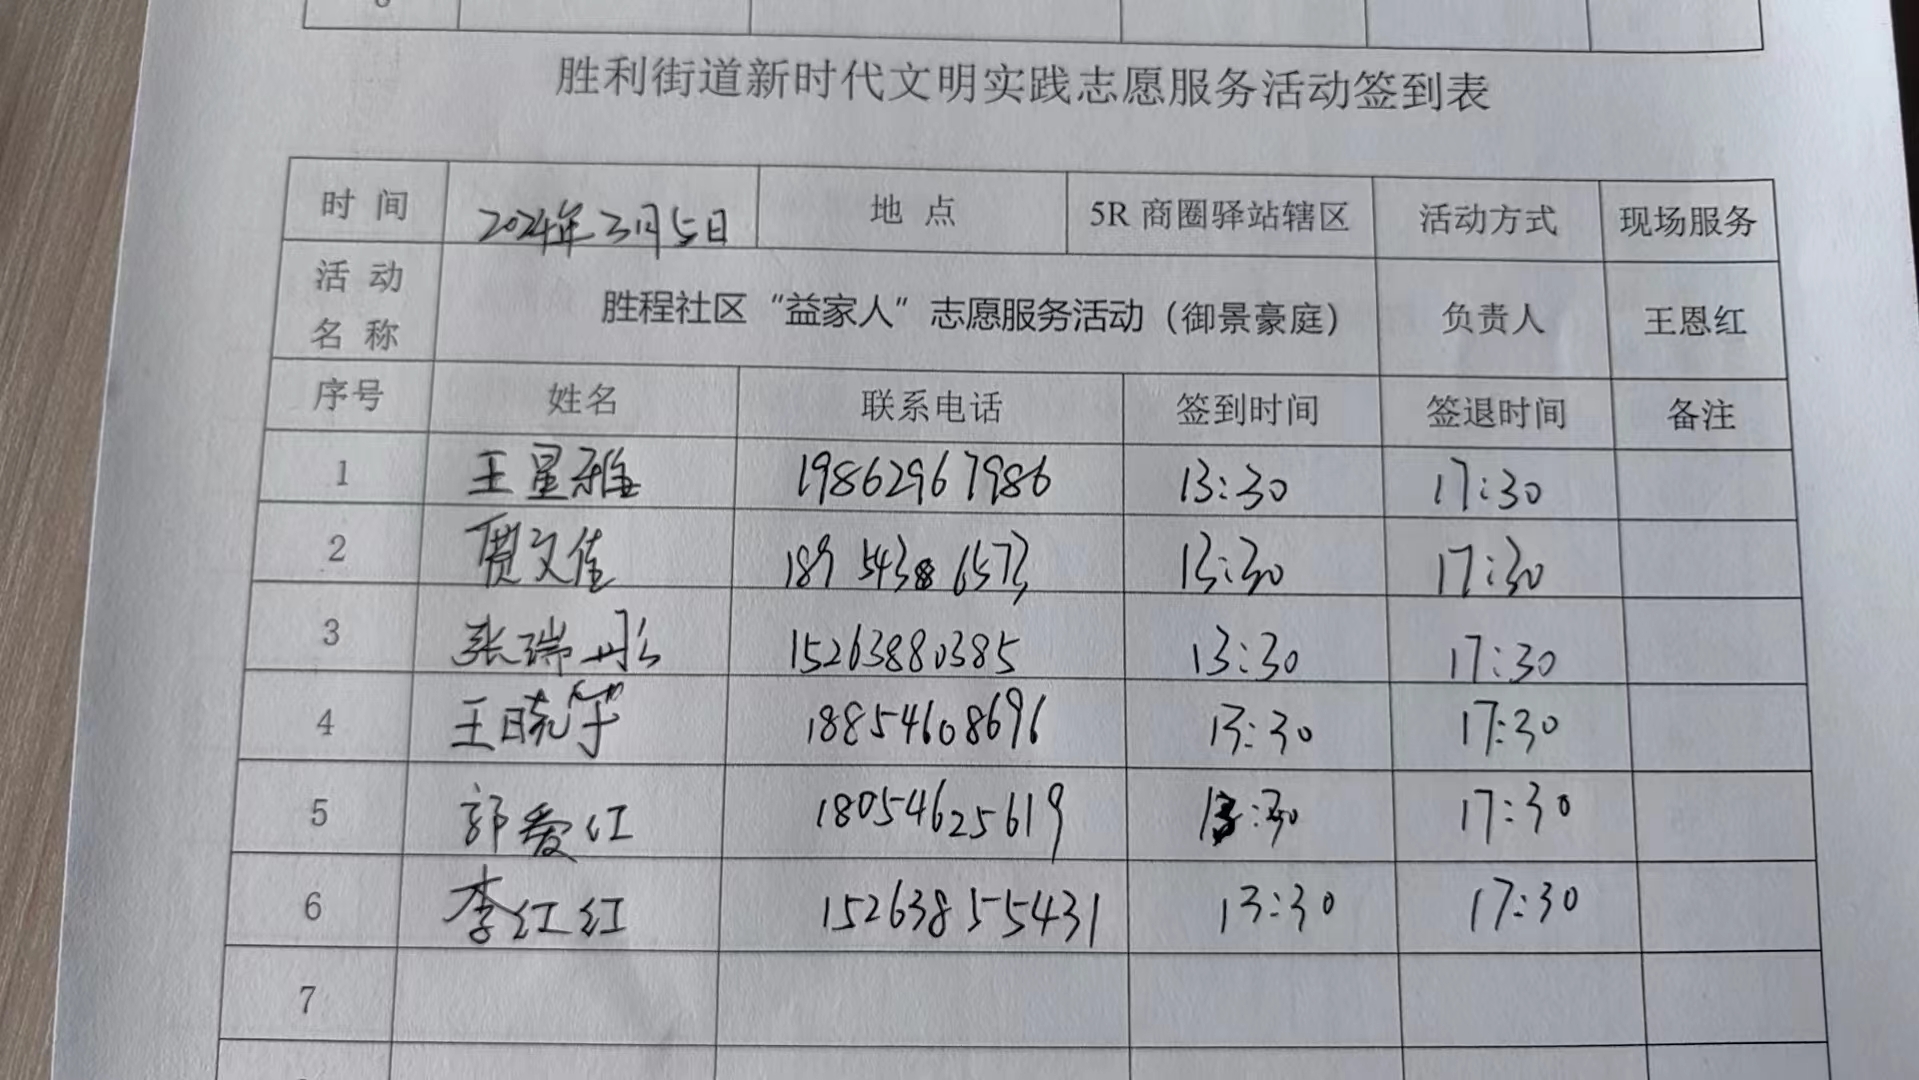 胜利街道新时代文明实践志愿服务活动签到表
时 间 2024年3月5日 地 点 5R 商圈驿站辖区 活动方式 现场服务
活 动
名 称 胜程社区“益家人”志愿服务活动（御景豪庭） 负责人 王恩红
序号 姓名 联系电话 签到时间 签退时间 备注
1 王星雅 19862967986 13:30 17:30
2 贾文佳 18954386573 13:30 17:30
3 张瑞彤 15263880385 13:30 17:30
4 王晓竽 18854608696 13:30 17:30
5 郭爱红 18054625619 13:30 17:30
6 李红红 15263855431 13:30 17:30
7